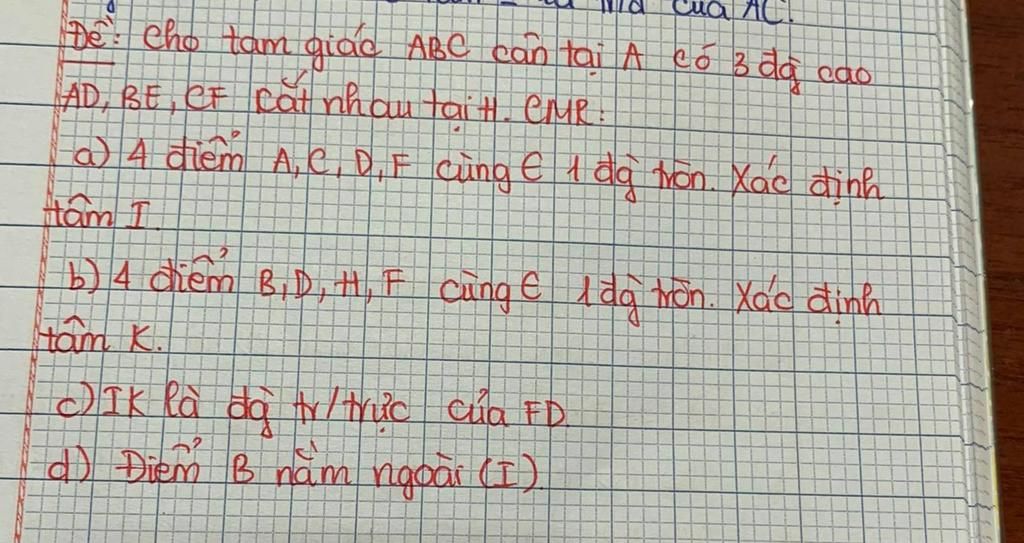 của AC.
Đề: Cho tam giác ABC cân tại A có 3 đg cao
AD, BE, CF cắt nhau tại H. CMR:
a) 4 điểm A, C, D, F cùng ∈ 1 đg tròn. Xác định
tâm I.
b) 4 điểm B, D, H, F cùng ∈ 1 đg tròn. Xác định
tâm K.
c) IK là đg tr/trực của FD
d) Điểm B nằm ngoài (I)